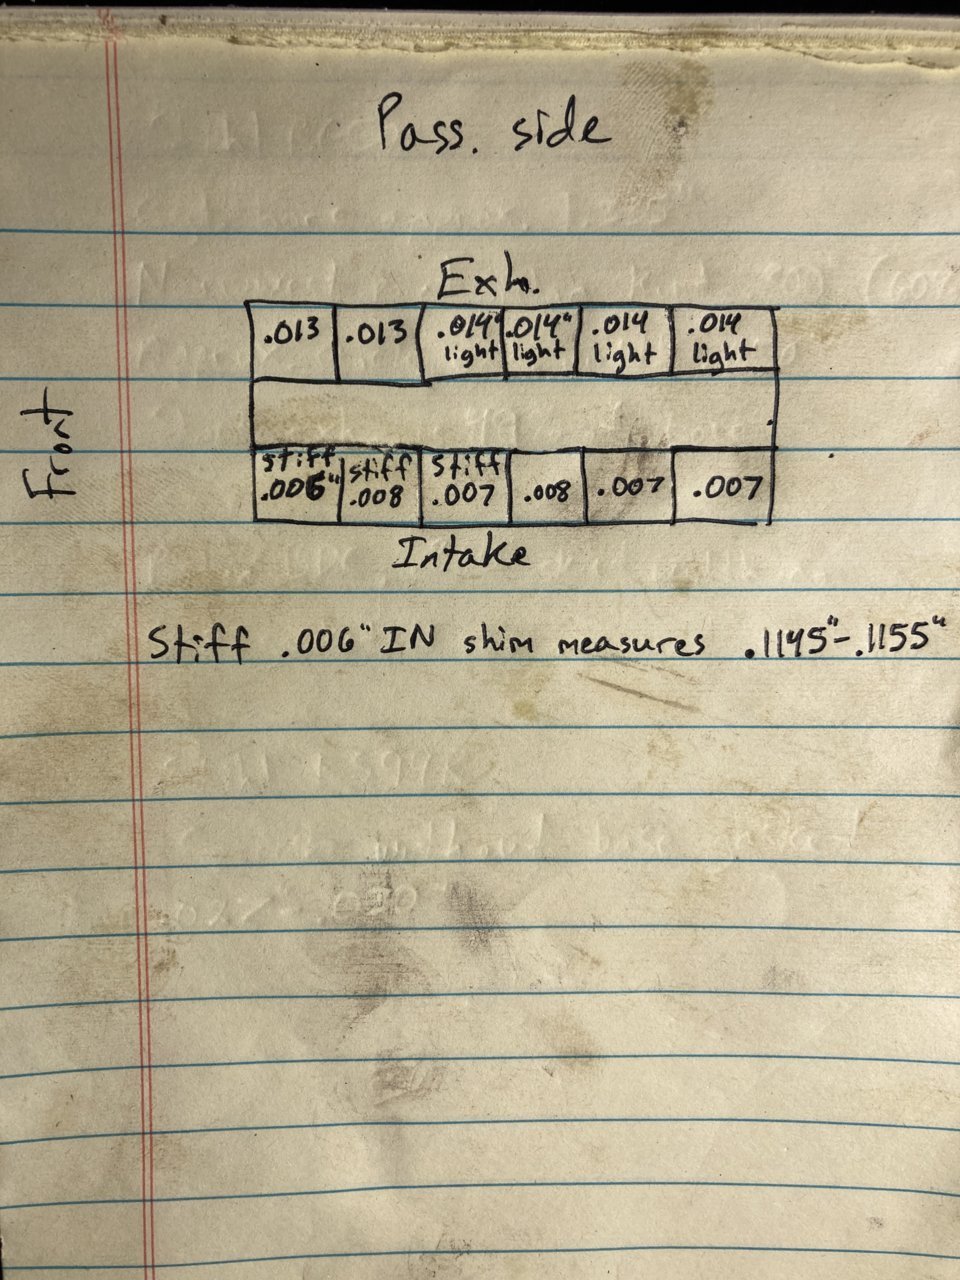 Pass. side
Exh.
.013 .013 .014" .014" .014 .014
light light light light
Front
stiff stiff stiff
.006" .008 .007 .008 .007 .007
Intake
Stiff .006" IN shim measures .1145"-.1155"